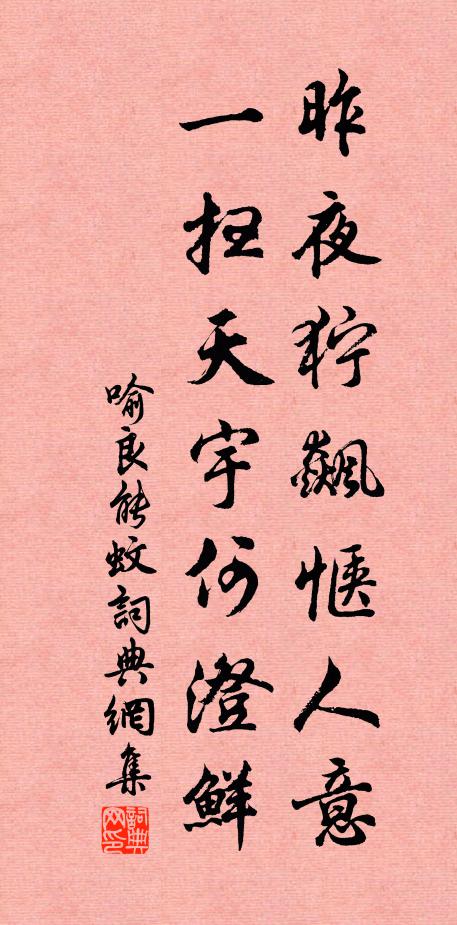 昨夜狞飙惬人意
一扫天宇何澄鲜
喻良能蚊詞典網集
詞典网印